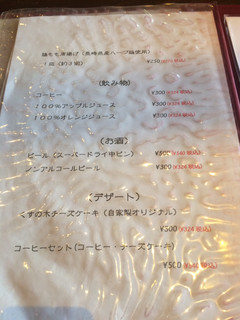 鶏もも唐揚げ（長崎県産ハーブ鶏使用）
1皿（約3個） ¥250
〈飲み物〉
コーヒー ¥300（¥324 税込）
100%アップルジュース ¥300（¥324 税込）
100%オレンジジュース ¥300（¥324 税込）
〈お酒〉
ビール（スーパードライ中ビン） ¥500（¥540 税込）
ノンアルコールビール ¥300（¥324 税込）
〈デザート〉
くすの木チーズケーキ（自家製オリジナル）
¥300（¥324 税込）
コーヒーセット（コーヒー・チーズケーキ）
¥500（¥540 税込）